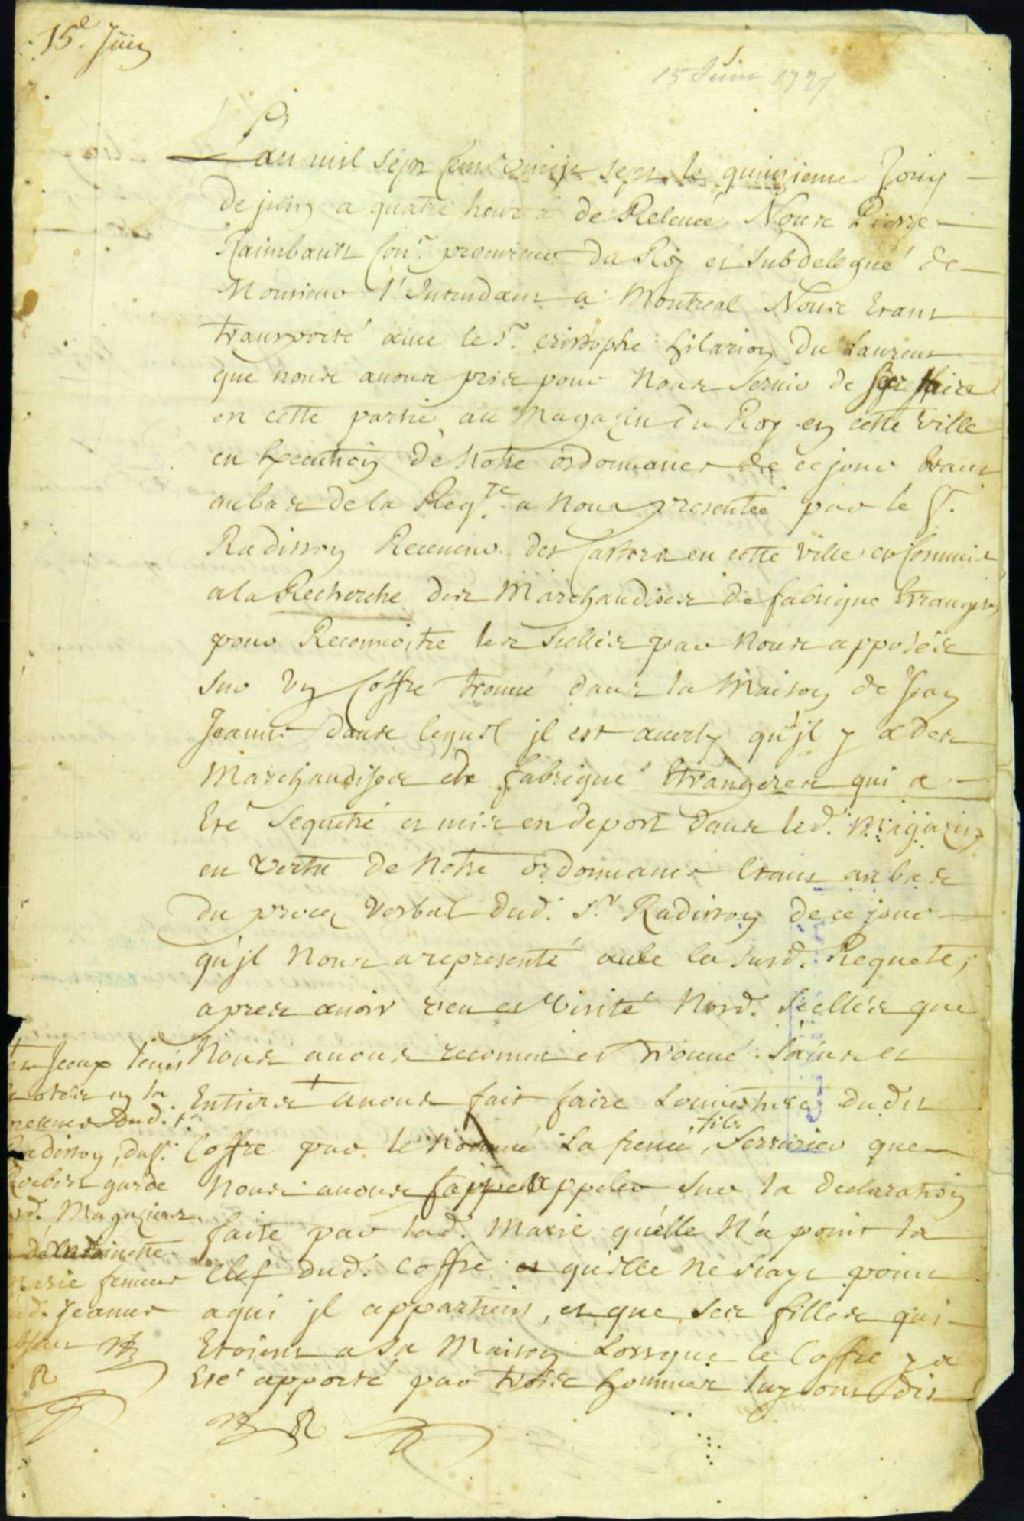 15e. Juin
15 Juin 1727
L'an mil sept Cens vingt sept le quinzieme Jour
de juin a quatre heures de Relevée Nous Pierre
Raimbault Conr. procureur du Roy et subdelegué de
Monsieur l'Intendant a Montreal Nous Etans
transporté avec le Sr. cristophe hilarion Du Laurent
que nous avons pris pour Nous Servir de
en cette partie au Magazin du Roy en cette ville
en Execution de Notre ordonnance de ce jour Etant
au bas de la Reqte. a Nous presentée par le Sr.
Radisson Receveur des Castors en cette ville et Commis
a la Recherche des Marchandises de fabrique Etrangeres
pour Reconnoitre les scellés par Nous apposés
sur un Coffre trouvé dans la Maison de
Jeanne dans lequel jl est averty qu'jl y a des
Marchandises de fabrique Etrangeres qui a
Eté sequetré et mis en deport dans led. Magazin
en vertu de Notre ordonnance Etant au bas
du procez verbal dud. Sr. Radisson de ce jour
qu'jl Nous a representé avec la susd. Requete,
apres avoir veu et visité Nosd. scellés que
Nous avons reconnu et trouvé sains et
Entiers avons fait faire Louverture dudit
Coffre par le Nommé La frenie, fils Serrurier que
Nous avons appeler sur la declaration
faite par lad. Marie qu'elle N'a point la
Clef dud. Coffre et qu'elle Ne sçayt point
a qui jl appartient, et que ses filles qui
Etoient a la Maison Lorsque le Coffre y a
Eté apporté par trois hommes luy ont dit
en la
presence dud. Sr.
Radisson, du Sr.
garde
Magazins
Marie femme
Jeanne
R
R